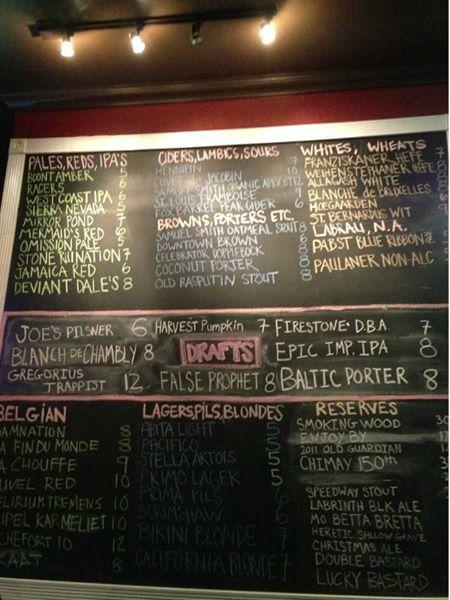 PALES, REDS, IPA'S
BOONT AMBER 5
RACER 5 6
WEST COAST IPA 6
SIERRA NEVADA 5
MIRROR POND 7
MERMAID'S RED 6
OMISSION PALE 5
STONE RUINATION 7
JAMAICA RED 6
DEVIANT DALE'S 8
CIDERS, LAMBICS, SOURS
HENNEPIN 7
JACOBIN
SAMUEL SMITH ORGANIC 12
ST. LOUIS FRAMBOISE
FOX BARREL PEAR CIDER 6
BROWNS, PORTERS ETC.
SAMUEL SMITH OATMEAL STOUT 8
DOWNTOWN BROWN 6
CELEBRATOR DOPPELBOCK
COCONUT PORTER
OLD RASPUTIN STOUT
WHITES, WHEATS
FRANZISKANER HEFE
WEIHENSTEPHANER HEFE
ALLAGASH WHITE
BLANCHE de BRUXELLES
HOEGAARDEN
ST. BERNARDUS WIT
LABEAU, N.A.
PABST BLUE RIBBON
PAULANER NON-ALC
JOE'S PILSNER 6
BLANCH DE CHAMBLY 8
GREGORIUS
TRAPPIST 12
HARVEST Pumpkin 7
DRAFTS
FALSE PROPHET 8
FIRESTONE D.B.A. 7
EPIC IMP. IPA 8
BALTIC PORTER 8
BELGIAN
AMNATION 8
A FIN DU MONDE 8
A CHOUFFE 9
UVEL RED 10
ELIRIUM TREMENS 10
IPEL KARMELIET 10
CHEFORT 10 12
KAAT 8
LAGERS, PILS, BLONDES
ABITA LIGHT 5
PACIFICO 5
STELLA ARTOIS 5
PRIMO LAGER 5
PRIMA PILS 6
SCRIMSHAW 6
BIKINI BLONDE 7
CALIFORNIA BLONDE 7
RESERVES
SMOKING WOOD 30
ENJOY BY
2011 OLD GUARDIAN
CHIMAY 150th
SPEEDWAY STOUT
LABRINTH BLK ALE
MO BETTA BRETTA
HERETIC SHALLOW GRAVE
CHRISTMAS ALE
DOUBLE BASTARD
LUCKY BASTARD